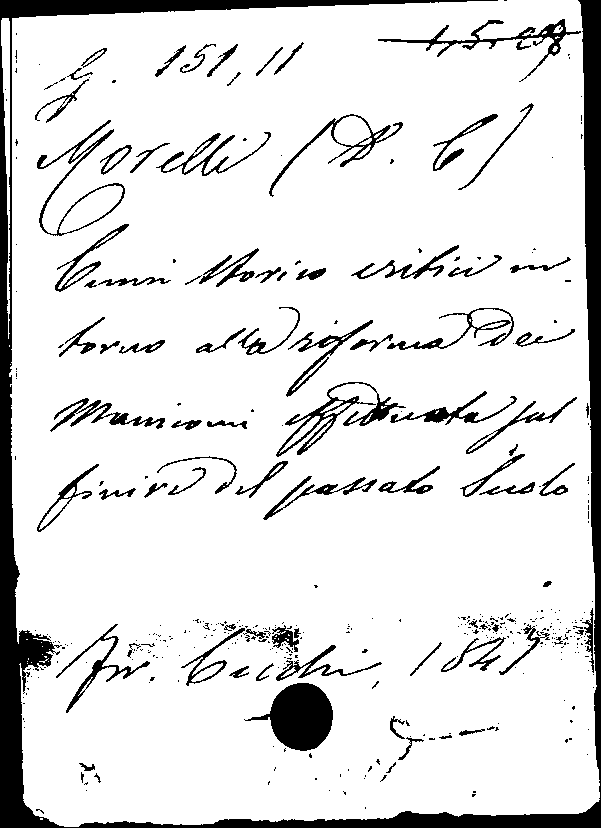 G. 151,11
Morelli (D. C)
Cenni storico critici in-
torno alla riforma dei
Manicomi effettuata sul
finire del passato Secolo
Fir. Cecchi, 1847